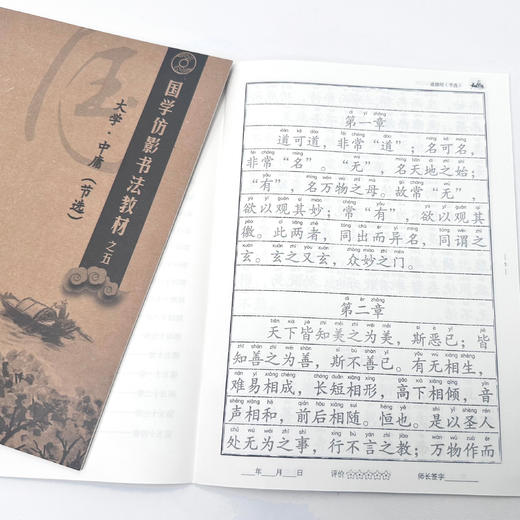 国学仿影书法教材 之五
大学·中庸（节选）
道德经（节选）
dì yī zhāng
第一章
道可道，非常“道”；名可名，
非常“名”。“无”，名天地之始；
“有”，名万物之母。故常“无”
欲以观其妙；常“有”，欲以观其
徼。此两者，同出而异名，同谓之
玄。玄之又玄，众妙之门。
dì èr zhāng
第二章
天下皆知美之为美，斯恶已；皆
知善之为善，斯不善已。有无相生，
难易相成，长短相形，高下相倾，音
声相和，前后相随。恒也。是以圣人
处无为之事，行不言之教；万物作而
___年___月___日 评价☆☆☆☆☆ 师长签字______